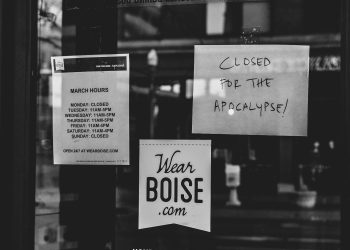 MARCH HOURS
MONDAY: CLOSED
TUESDAY: 11AM-5PM
WEDNESDAY: 11AM-5PM
THURSDAY: 11AM-5PM
FRIDAY: 11AM-6PM
SATURDAY: 11AM-4PM
SUNDAY: CLOSED
OPEN 24/7 AT WEARBOISE.COM
CLOSED
FOR THE
APOCALYPSE!
Wear
BOISE
.com